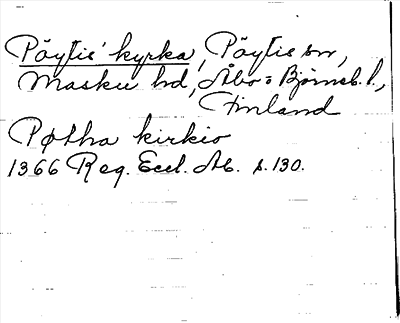 Pöytis kyrka, Pöytis sn,
Masku hd, Åbo= Björneb. l.,
Finland
Pøtha kirkio
1366 Reg. Eccl. Ab. s. 130.